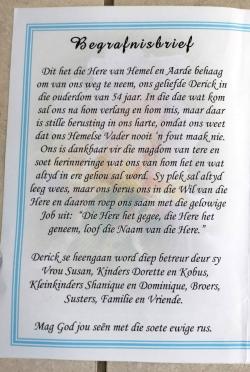 Begrafnisbrief
Dit het die Here van Hemel en Aarde behaag
om van ons weg te neem, ons geliefde Derick in
die ouderdom van 54 jaar. In die dae wat kom
sal ons na hom verlang en hom mis, maar daar
is stille berusting in ons harte, omdat ons weet
dat ons Hemelse Vader nooit 'n fout maak nie.
Ons is dankbaar vir die magdom van tere en
soet herinneringe wat ons van hom het en wat
altyd in ere gehou sal word. Sy plek sal altyd
leeg wees, maar ons berus ons in die Wil van die
Here en daarom roep ons saam met die gelowige
Job uit: "Die Here het gegee, die Here het
geneem, loof die Naam van die Here."
Derick se heengaan word diep betreur deur sy
Vrou Susan, Kinders Dorette en Kobus,
Kleinkinders Shanique en Dominique, Broers,
Susters, Familie en Vriende.
Mag God jou seën met die soete ewige rus.